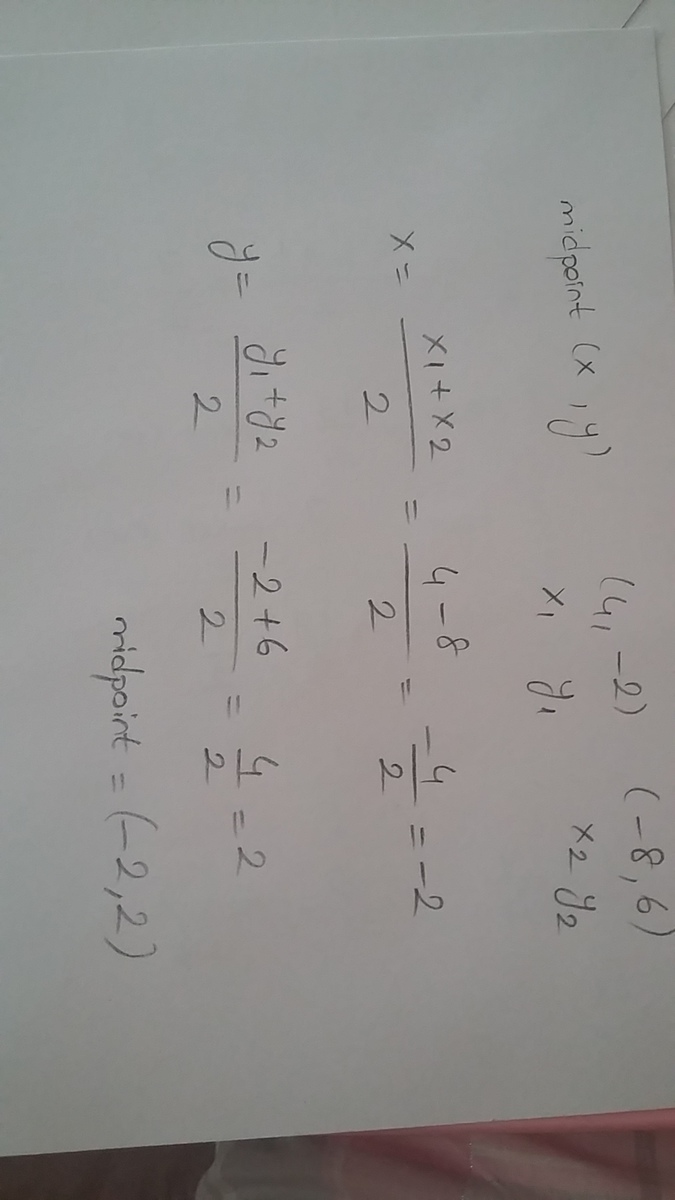 midpoint (x, y) (4, -2) (-8, 6)
x₁ y₁ x₂ y₂
x = x₁ + x₂ / 2 = 4 - 8 / 2 = -4 / 2 = -2
y = y₁ + y₂ / 2 = -2 + 6 / 2 = 4 / 2 = 2
midpoint = (-2, 2)